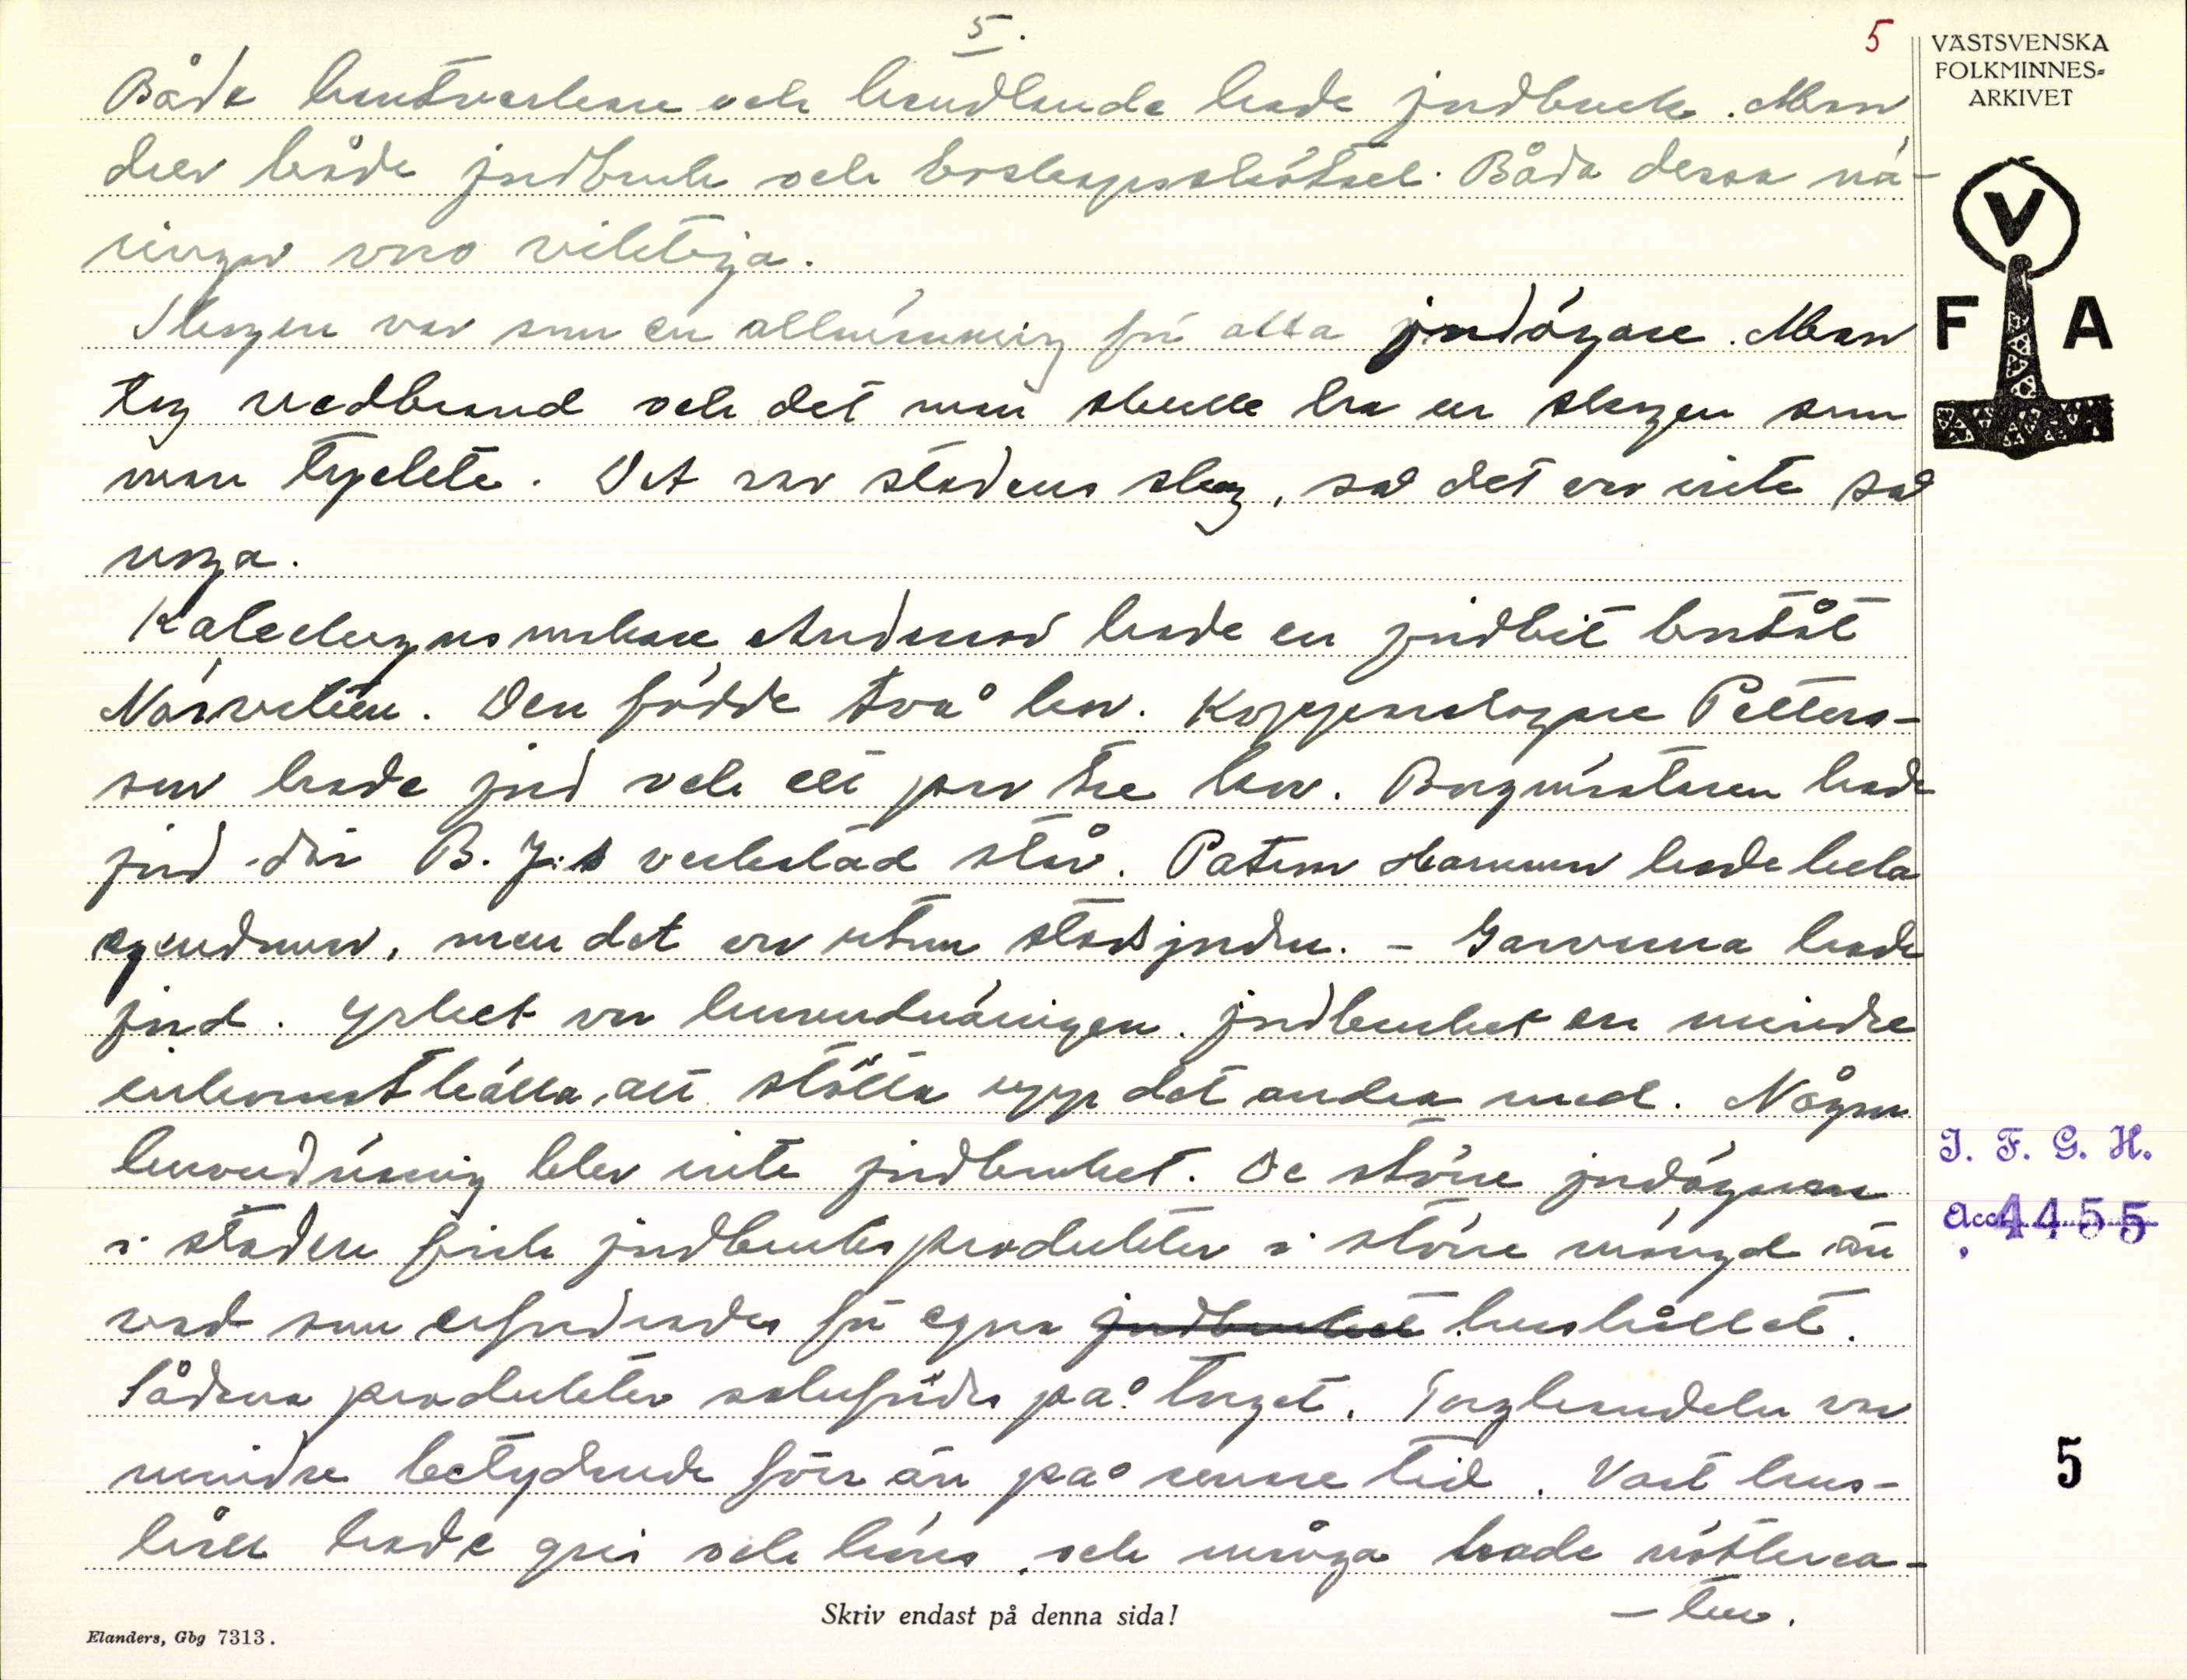 5.
5
VÄSTSVENSKA
FOLKMINNES-
ARKIVET
Både hantverkare och handlande hade jordbruk. Man
drev både jordbruk och boskapsskötsel. Båda dessa nä-
ringar voro viktiga.
Skogen var som en allmänning för alla jordägare. Man
tog vedbrand och det man skulle ha ur skogen som
man tyckte. Det var stadens skog, så det var inte så
noga.
Karduansmakare Anderson hade en jordbit bortåt
Näs. Den födde två kor. Kopparslagare Petters-
son hade jord och ett par tre kor. Borgmästaren hade
jord där B. J:s verkstad står. Patron Hammar hade hela
egendomen, men det var utom stadsjorden. – Garvarna hade
jord. Yrket var huvudnäringen. Jordbruket en mindre
inkomstkälla att stötta upp det andra med. Någon
huvudnäring blev inte jordbruket. De större jordägarna
i staden fick jordbruksprodukter i större mängd än
vad som erfordrades för egna jordbruket hushållet.
Sådana produkter salufördes på torget. Torghandeln var
mindre betydande förr än på senare tid. Vart hus-
håll hade gris och höns, och många hade nötkrea-
-tur.
V
F A
I. F. G. H.
Acc. 4455
5
Skriv endast på denna sida!
Elanders, Gbg 7313.